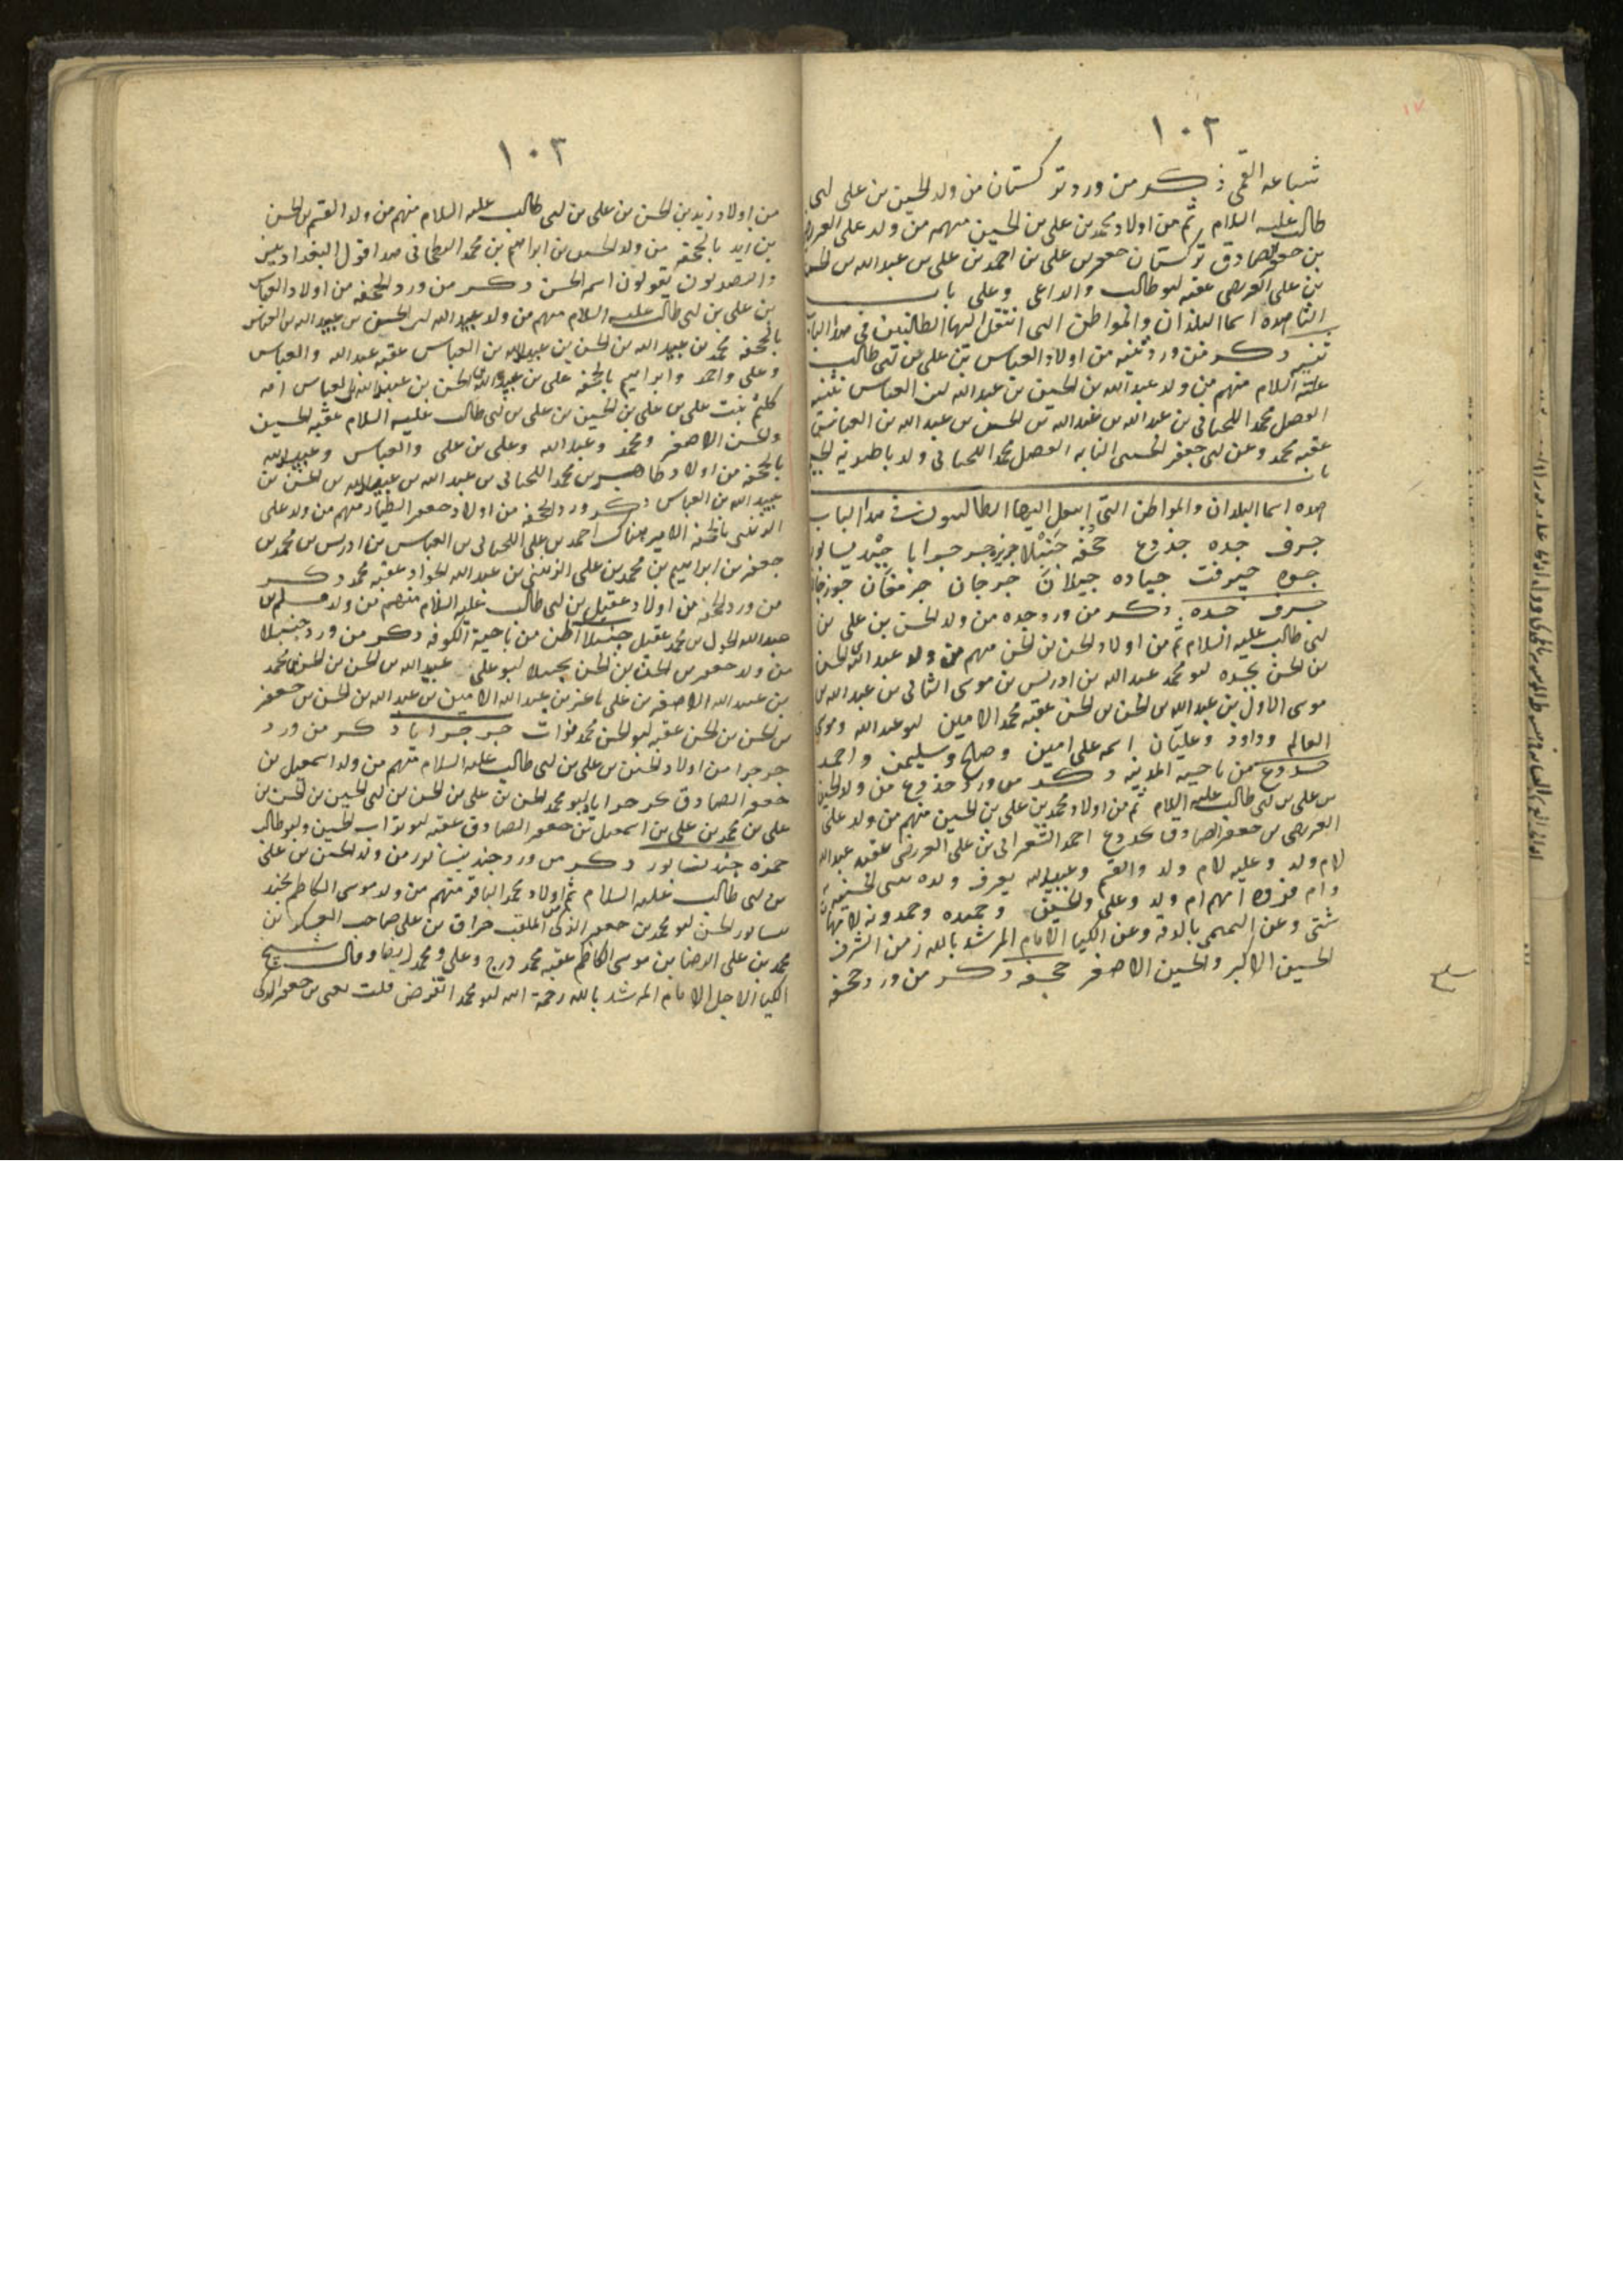 ١٠٢
شباعه القمى ذكر من ورد تركستان من ولد الحسين بن على بن ابى
طالب عليه السلام ثم من اولاد محمد بن على بن الحسين منهم من ولد على العريضى
بن جعفر الصادق تركستان جعفر بن على بن احمد بن على بن عبد الله بن الحسن
بن على العريضى عقبه ابو طالب والداعى وعلى باب
الثا هذه اسما البلدان والمواطن التى انتقل اليها الطالبيين فى هذا الباب
ذكر من ورد من اولاد العباس بن على بن ابى طالب
عليه السلام منهم من ولد عبد الله بن الحسين بن عبد الله بن العباس
محمد اللحيانى بن عبد الله بن عبيد الله بن الحسن بن عبيد الله بن العباس
عقبه محمد وعن ابى جعفر الحسينى النسابه محمد اللحيانى ولد
باب
هذه اسما البلدان والمواطن التى انتقل اليها الطالبيون فى هذا الباب
جرف جده جذوع جحفه جنبلا جزيره جرجرايا جنديسابور
جوه جيرفت جياده جيلان جرجان جرمقان جوزجان
جرف جده ذكر من ورد جده من ولد الحسن بن على بن
ابى طالب عليه السلام ثم من اولاد الحسن بن الحسن منهم من ولد عبد الله بن الحسن
بن الحسن بجده ابو محمد عبد الله بن ادريس بن موسى الثانى بن عبد الله بن
موسى الاول بن عبد الله بن الحسن بن الحسن عقبه محمد الامين ابو عبد الله وموسى
العالم وداود وعليان اسمه على امين وصالح وسليمن واحمد
جذوع من ناحيه المدينه ذكر من ورد جذوع من ولد الحسين
بن على بن ابى طالب عليه السلام ثم من اولاد محمد بن على بن الحسين منهم من ولد على
العريضى بن جعفر الصادق بجذوع احمد الشعرانى بن على العريضى عقبه عبد الله
لام ولد وعليه لام ولد والقسم وعبيد الله يعرف ولده ببنى
وام فروه امهم ام ولد وعلى والحسين وحميده وحمدونه لامهات
شتى وعن بالدقه وعن الكيا الامام المرشد بالله زين الشرف
الحسين الاكبر والحسين الاصغر جحفه ذكر من ورد جحفه
١٠٣
من اولاد زيد بن الحسن بن على بن ابى طالب عليه السلام منهم من ولد القسم بن الحسن
بن زيد بالجحفه من ولد الحسين بن ابراهيم بن محمد البطحانى هذا قول البغداديين
والبصريون يقولون اسمه الحسن ذكر من ورد الجحفه من اولاد العباس
بن على بن ابى طالب عليه السلام منهم من ولد عبيد الله بن الحسن بن عبيد الله بن العباس
بالجحفه محمد بن عبيد الله بن الحسن بن عبيد الله بن العباس عقبه عبد الله والعباس
وعلى واحمد وابراهيم بالجحفه على بن عبيد الله بن الحسن بن عبيد الله بن العباس امه
كلثم بنت على بن على بن الحسين بن على بن ابى طالب عليه السلام عقبه الحسين
والحسن الاصغر ومحمد وعبد الله وعلى بن على والعباس وعبيد الله
بالجحفه من اولاد طاهر بن محمد اللحيانى بن عبد الله بن عبيد الله بن الحسن بن
عبيد الله بن العباس ذكر ورد الجحفه من اولاد جعفر الطيار منهم من ولد على
الزينبى بالجحفه الامير هناك احمد بن على اللحيانى بن العباس بن ادريس بن محمد بن
جعفر بن ابراهيم بن محمد بن على الزينبى بن عبد الله الجواد عقبه محمد ذكر
من ورد الجحفه من اولاد عقيل بن ابى طالب عليه السلام منهم من ولد مسلم بن
عبد الله الاحول بن محمد عقيل جنبلا اظن من ناحية الكوفه ذكر من ورد جنبلا
من ولد جعفر بن الحسن بن الحسن بجنبلا ابو على عبيد الله بن الحسن بن الحسن بن محمد
بن عبيد الله الاصغر بن على باغر بن عبيد الله الامير بن عبد الله بن الحسن بن جعفر
بن الحسن بن الحسن عقبه ابو الحسن محمد فرات جرجرايا ذكر من ورد
جرجرا من اولاد الحسين بن على بن ابى طالب عليه السلام منهم من ولد اسمعيل بن
جعفر الصادق بجرجرايا ابو محمد الحسن بن على بن الحسن بن ابى الحسين بن الحسن بن
على بن محمد بن على بن اسمعيل بن جعفر الصادق عقبه ابو تراب الحسين وابو طالب
حمزه جنديسابور ذكر من ورد جنديسابور من ولد الحسين بن على
بن ابى طالب عليه السلام ثم من اولاد محمد الباقر منهم من ولد موسى الكاظم بجند
يسابور الحسن ابو محمد بن جعفر الذكى الملقب حراق بن على صاحب العسكر بن
محمد بن على الرضا بن موسى الكاظم عقبه محمد درج وعلى ومحمد ايضا وقال شيخ
الكيا الاجل الامام المرشد بالله رحمة الله ابو محمد انقرض قلت يعنى بن جعفر الذكى